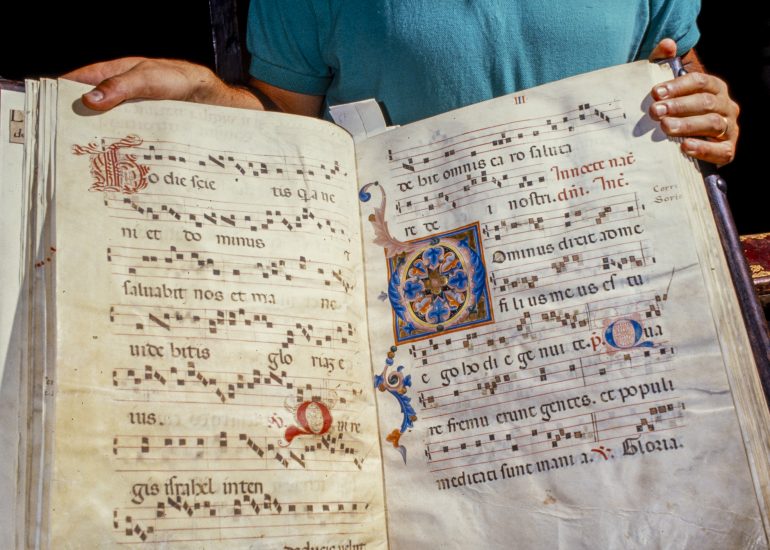 Hodie scie tis quia ve
ni et do minus
salvabit nos et ma ne
videbitis glo riam e
ius. ps. Qui re
gis israhel inten
deducis velut
III
debit omnis ca ro saluta
re de i nostri. In nocte nat.
dni. Int.
Dominus dixit ad me
filius meus es tu
e go ho di e ge nui te. p. Qua
re fremu erunt gentes. et populi
meditati sunt inani a. V. Gloria.